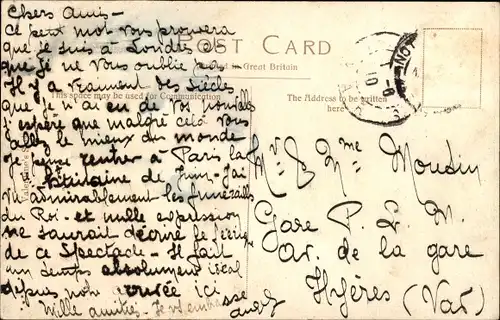 Chers Amis -
Ce petit mot vous prouvera
que je suis à Londres et
que je ne vous oublie pas -
Il y a vraiment des siècles
que je n'ai eu de vos nouvelles
j'espère que malgré cela vous
allez le mieux du monde
Je pense rentrer à Paris la
de Juin - J'ai
vu admirablement les funérailles
du Roi - et nulle expression
ne saurait décrire le
de ce Spectacle - Il fait
un temps absolument idéal
depuis notre arrivée ici
Mille amitiés - Je vous embrasse
POST CARD
in Great Britain
This space may be used for Communication
The Address to be written
here
Mr & Mme Moudin
Gare P. L. M.
av. de la gare
Hyères (Var)